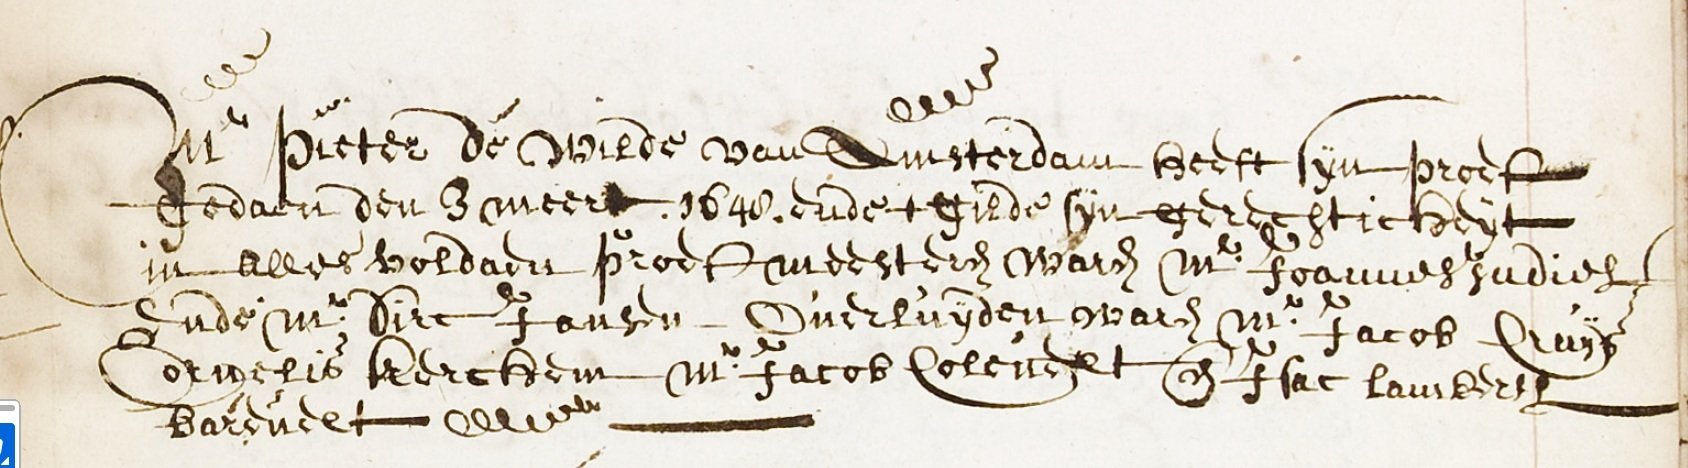 Mr Pieter de Wilde van Amsterdam heeft syn proef
gedaen den 3 meert .1648. ende t gilde syn gerechtickheyt
in alles voldaen proefmeesters warē Mr Joannes Judich
Ende Mr Dirc Jansen Ouerluyden warē Mr Jacob Cruys
Cornelis kerckhem Mr Jacob Coleuelt eñ Isac lambertsz
bareuelt